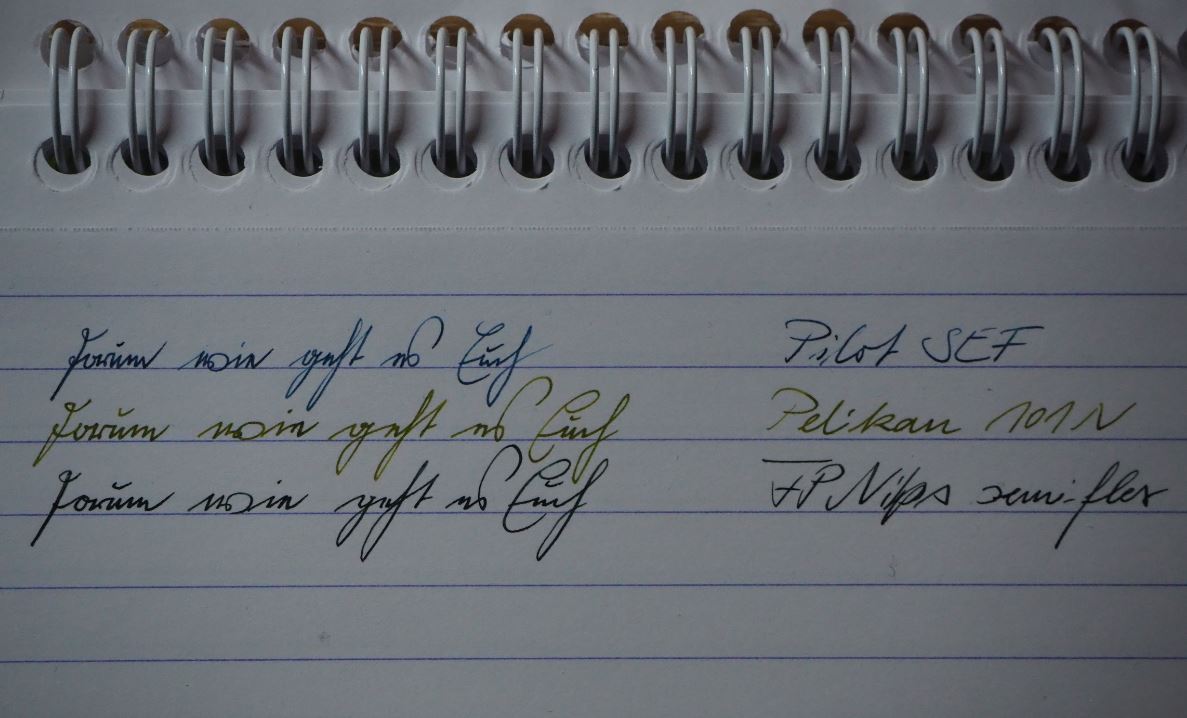 Forum wie geht es Euch Pilot SEF
Forum wie geht es Euch Pelikan 101 N
Forum wie geht es Euch FP Nibs semi-flex